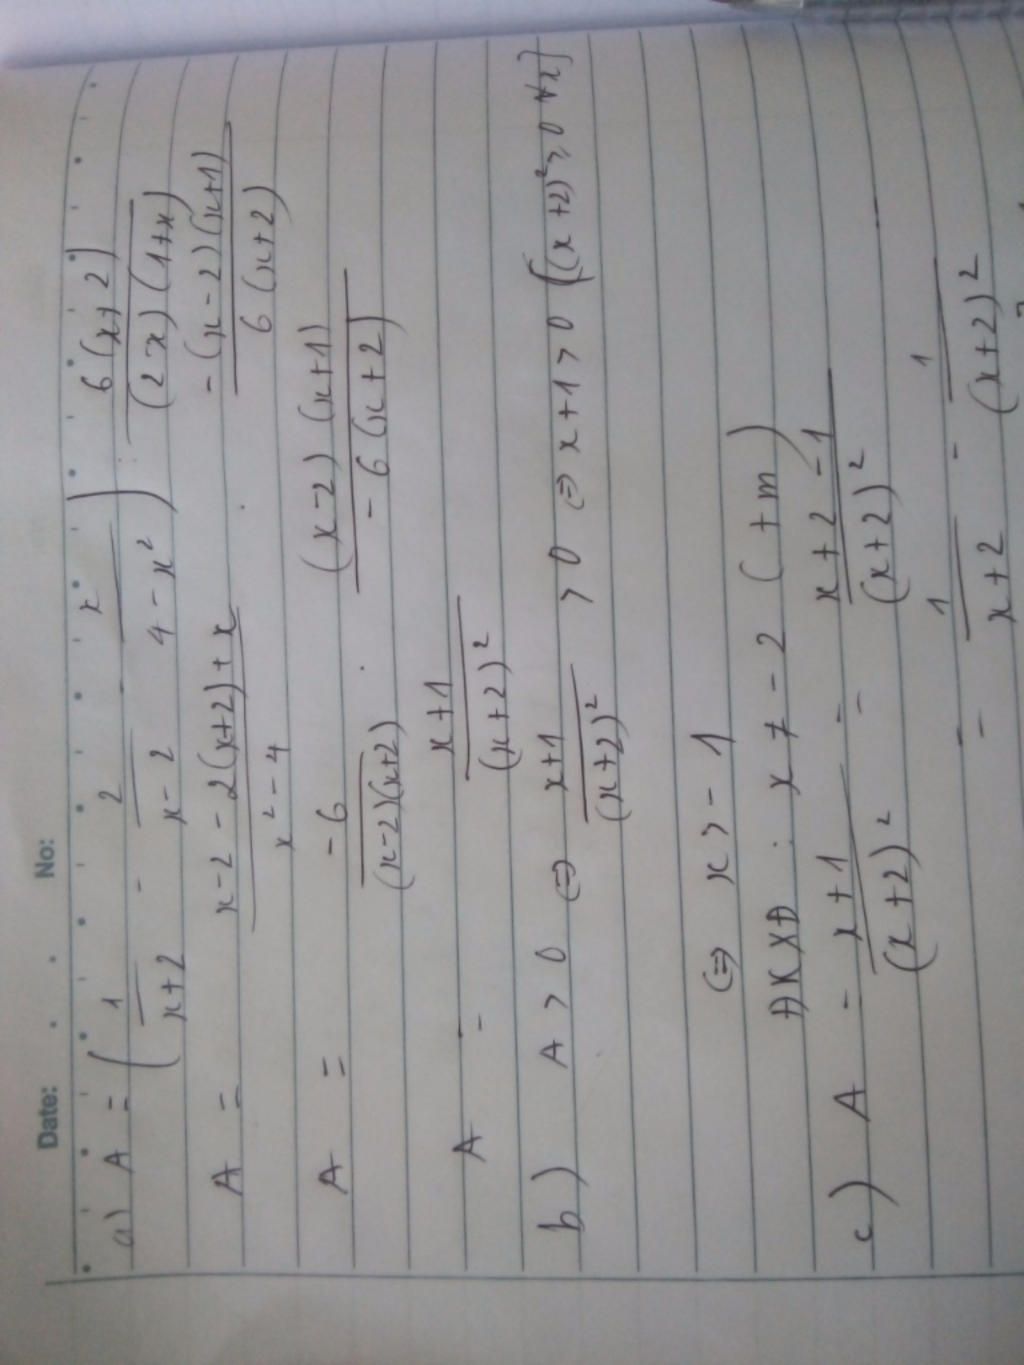 Date: No:
a) A = ( 1/(x+2) - 2/(x-2) - x/(4-x²) ) : 6(x+2)/((2-x)(1+x))
A = (x-2-2(x+2)+x)/(x²-4) · -(x-2)(x+1)/(6(x+2))
A = -6/((x-2)(x+2)) · (x-2)(x+1)/(-6(x+2))
A = (x+1)/(x+2)²
b) A > 0 ⇔ (x+1)/(x+2)² > 0 ⇔ x+1 > 0 ((x+2)² ≥ 0 ∀x)
⇔ x > -1
ĐKXĐ : x ≠ -2 (tm)
c) A = (x+1)/(x+2)² = (x+2-1)/(x+2)²
= 1/(x+2) - 1/(x+2)²